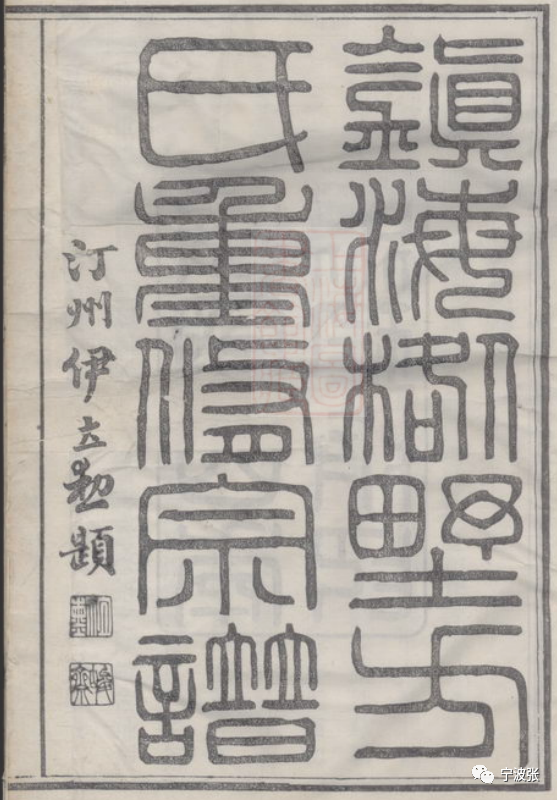 鎮海柏墅方
氏重修宗譜
汀州伊立勲題
宁波张